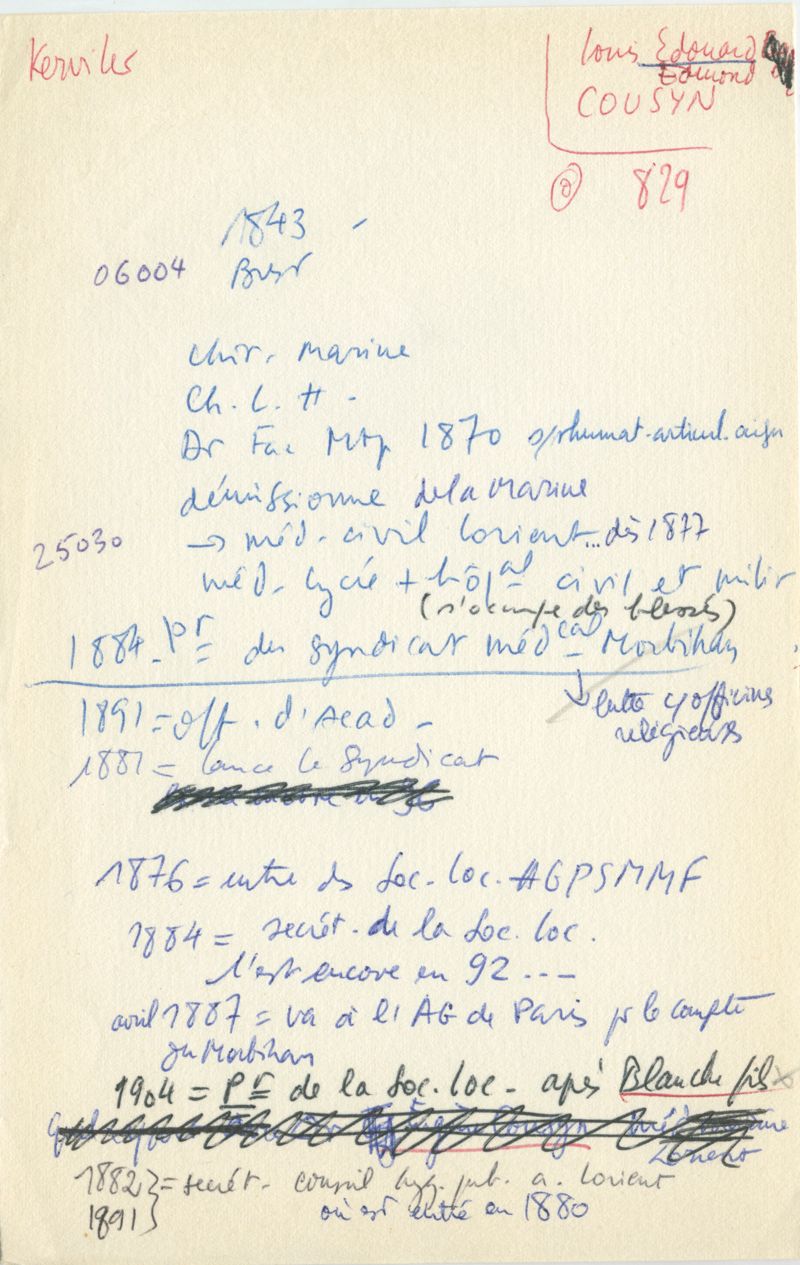 Kerviler
Louis Edouard
Edmond
COUSYN
829
1843 -
06004
Brest
chir. marine
Ch. L. H -
Dr Fac Mtp 1870 s/rhumat. articul. aigu
démissionne de la Marine
25030
→ méd. civil Lorient... dès 1877
méd. lycée + hôpal civil et milit
(s'occupe des blessés)
1884 - Pr du Syndicat médcal Morbihan
→ lutte c/officines
religieuses
1891 = off. d'Acad -
1881 = lance le Syndicat
1876 = entre ds Soc. loc. AGPSMMF
1884 = secrét. de la Soc. loc.
l'est encore en 92 ...
avril 1887 = va à l'AG de Paris pr le compte
du Morbihan
1904 = Pr de la Soc. loc - après Blanche fils
Lorient
1882 } = secrét. conseil hyg. pub. a. Lorient
1891 }
où est entré en 1880